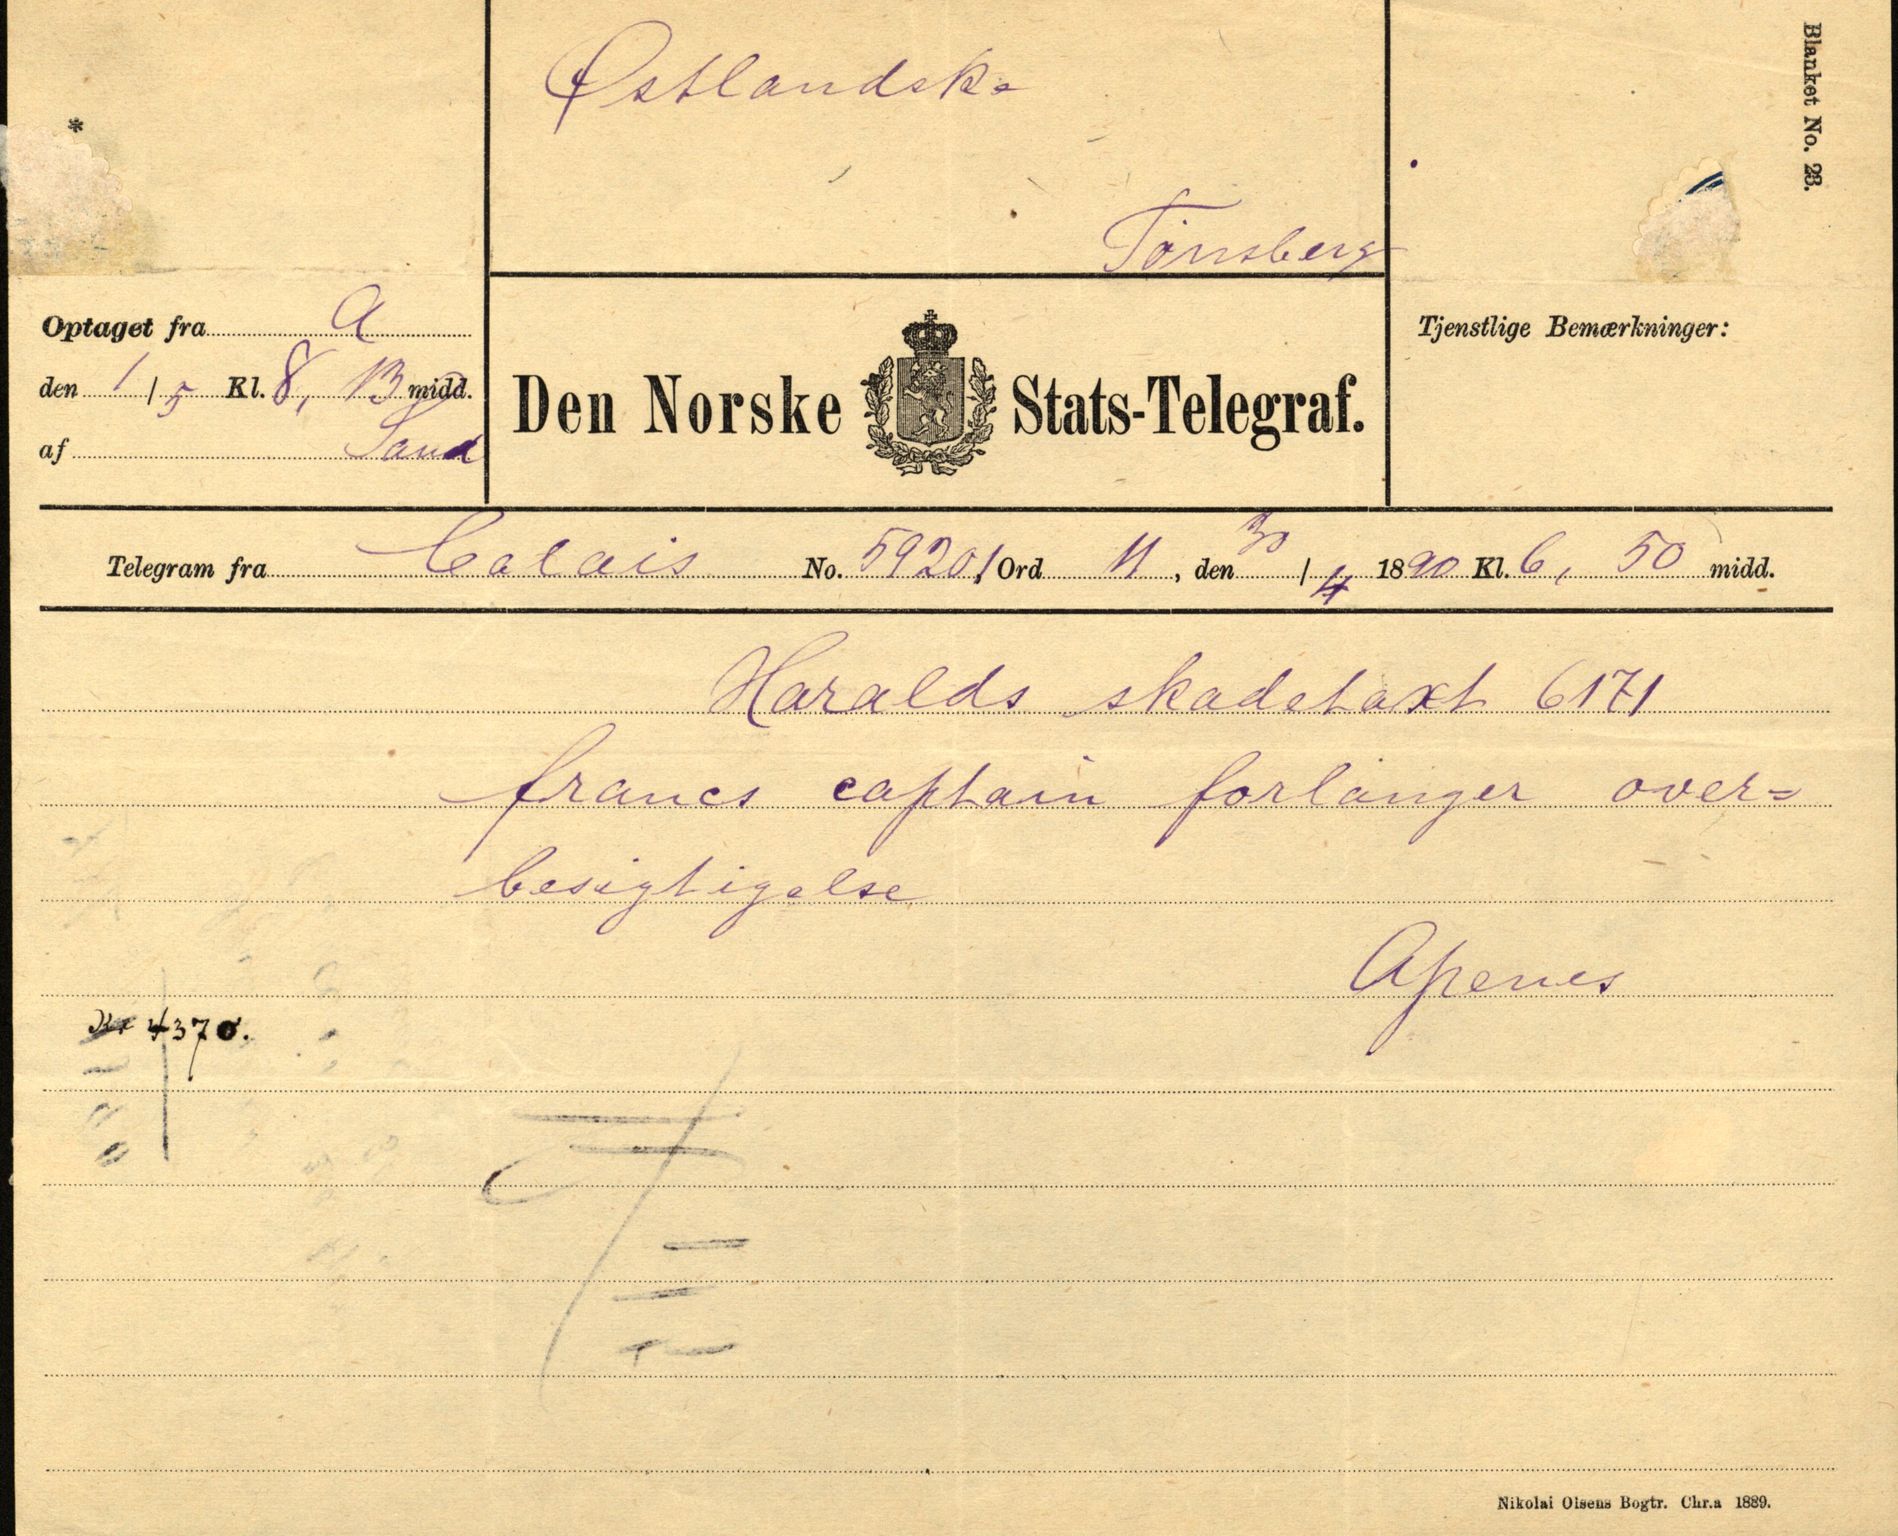 Blanket No. 23.
Østlandske
Tønsberg
*
Optaget fra A
den 1/5 Kl. 8, 13 midd.
af Sand
Den Norske Stats-Telegraf.
Tjenstlige Bemærkninger:
Telegram fra Calais No. 59201 Ord 11, den 30/4 1890 Kl. 6, 50 midd.
Haralds skadetaxt 6171
francs captain forlanger over-
besigtigelse
Apenes
Kr 4370.
Nikolai Olsens Bogtr. Chr.a 1889.